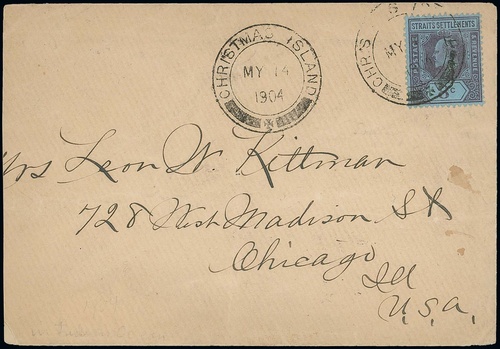 CHRISTMAS ISLAND
MY 14
1904
CHRIS
MY
STRAITS SETTLEMENTS
POSTAGE
Mrs Leon W. Kittman
728 West Madison St
Chicago
Ill
U.S.A.